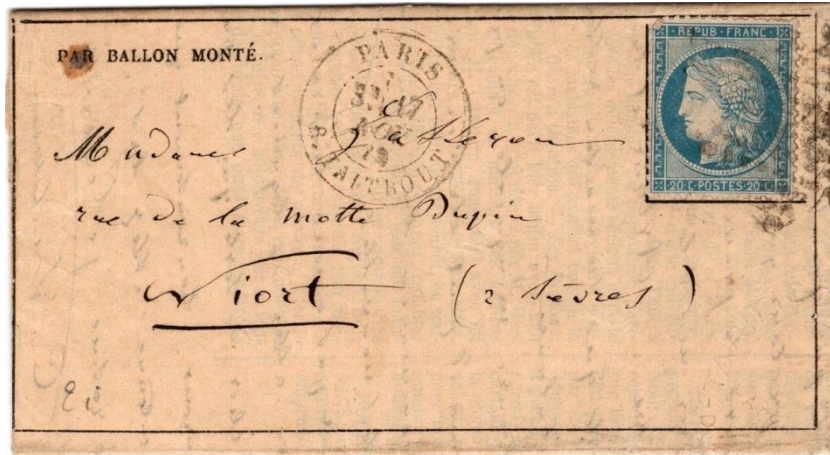 PAR BALLON MONTÉ.
PARIS
R. TAITBOUT
REPUB. FRANC.
20 C. POSTES 20 C.
Madame
rue de la Motte Dupin
Niort (2 Sèvres)